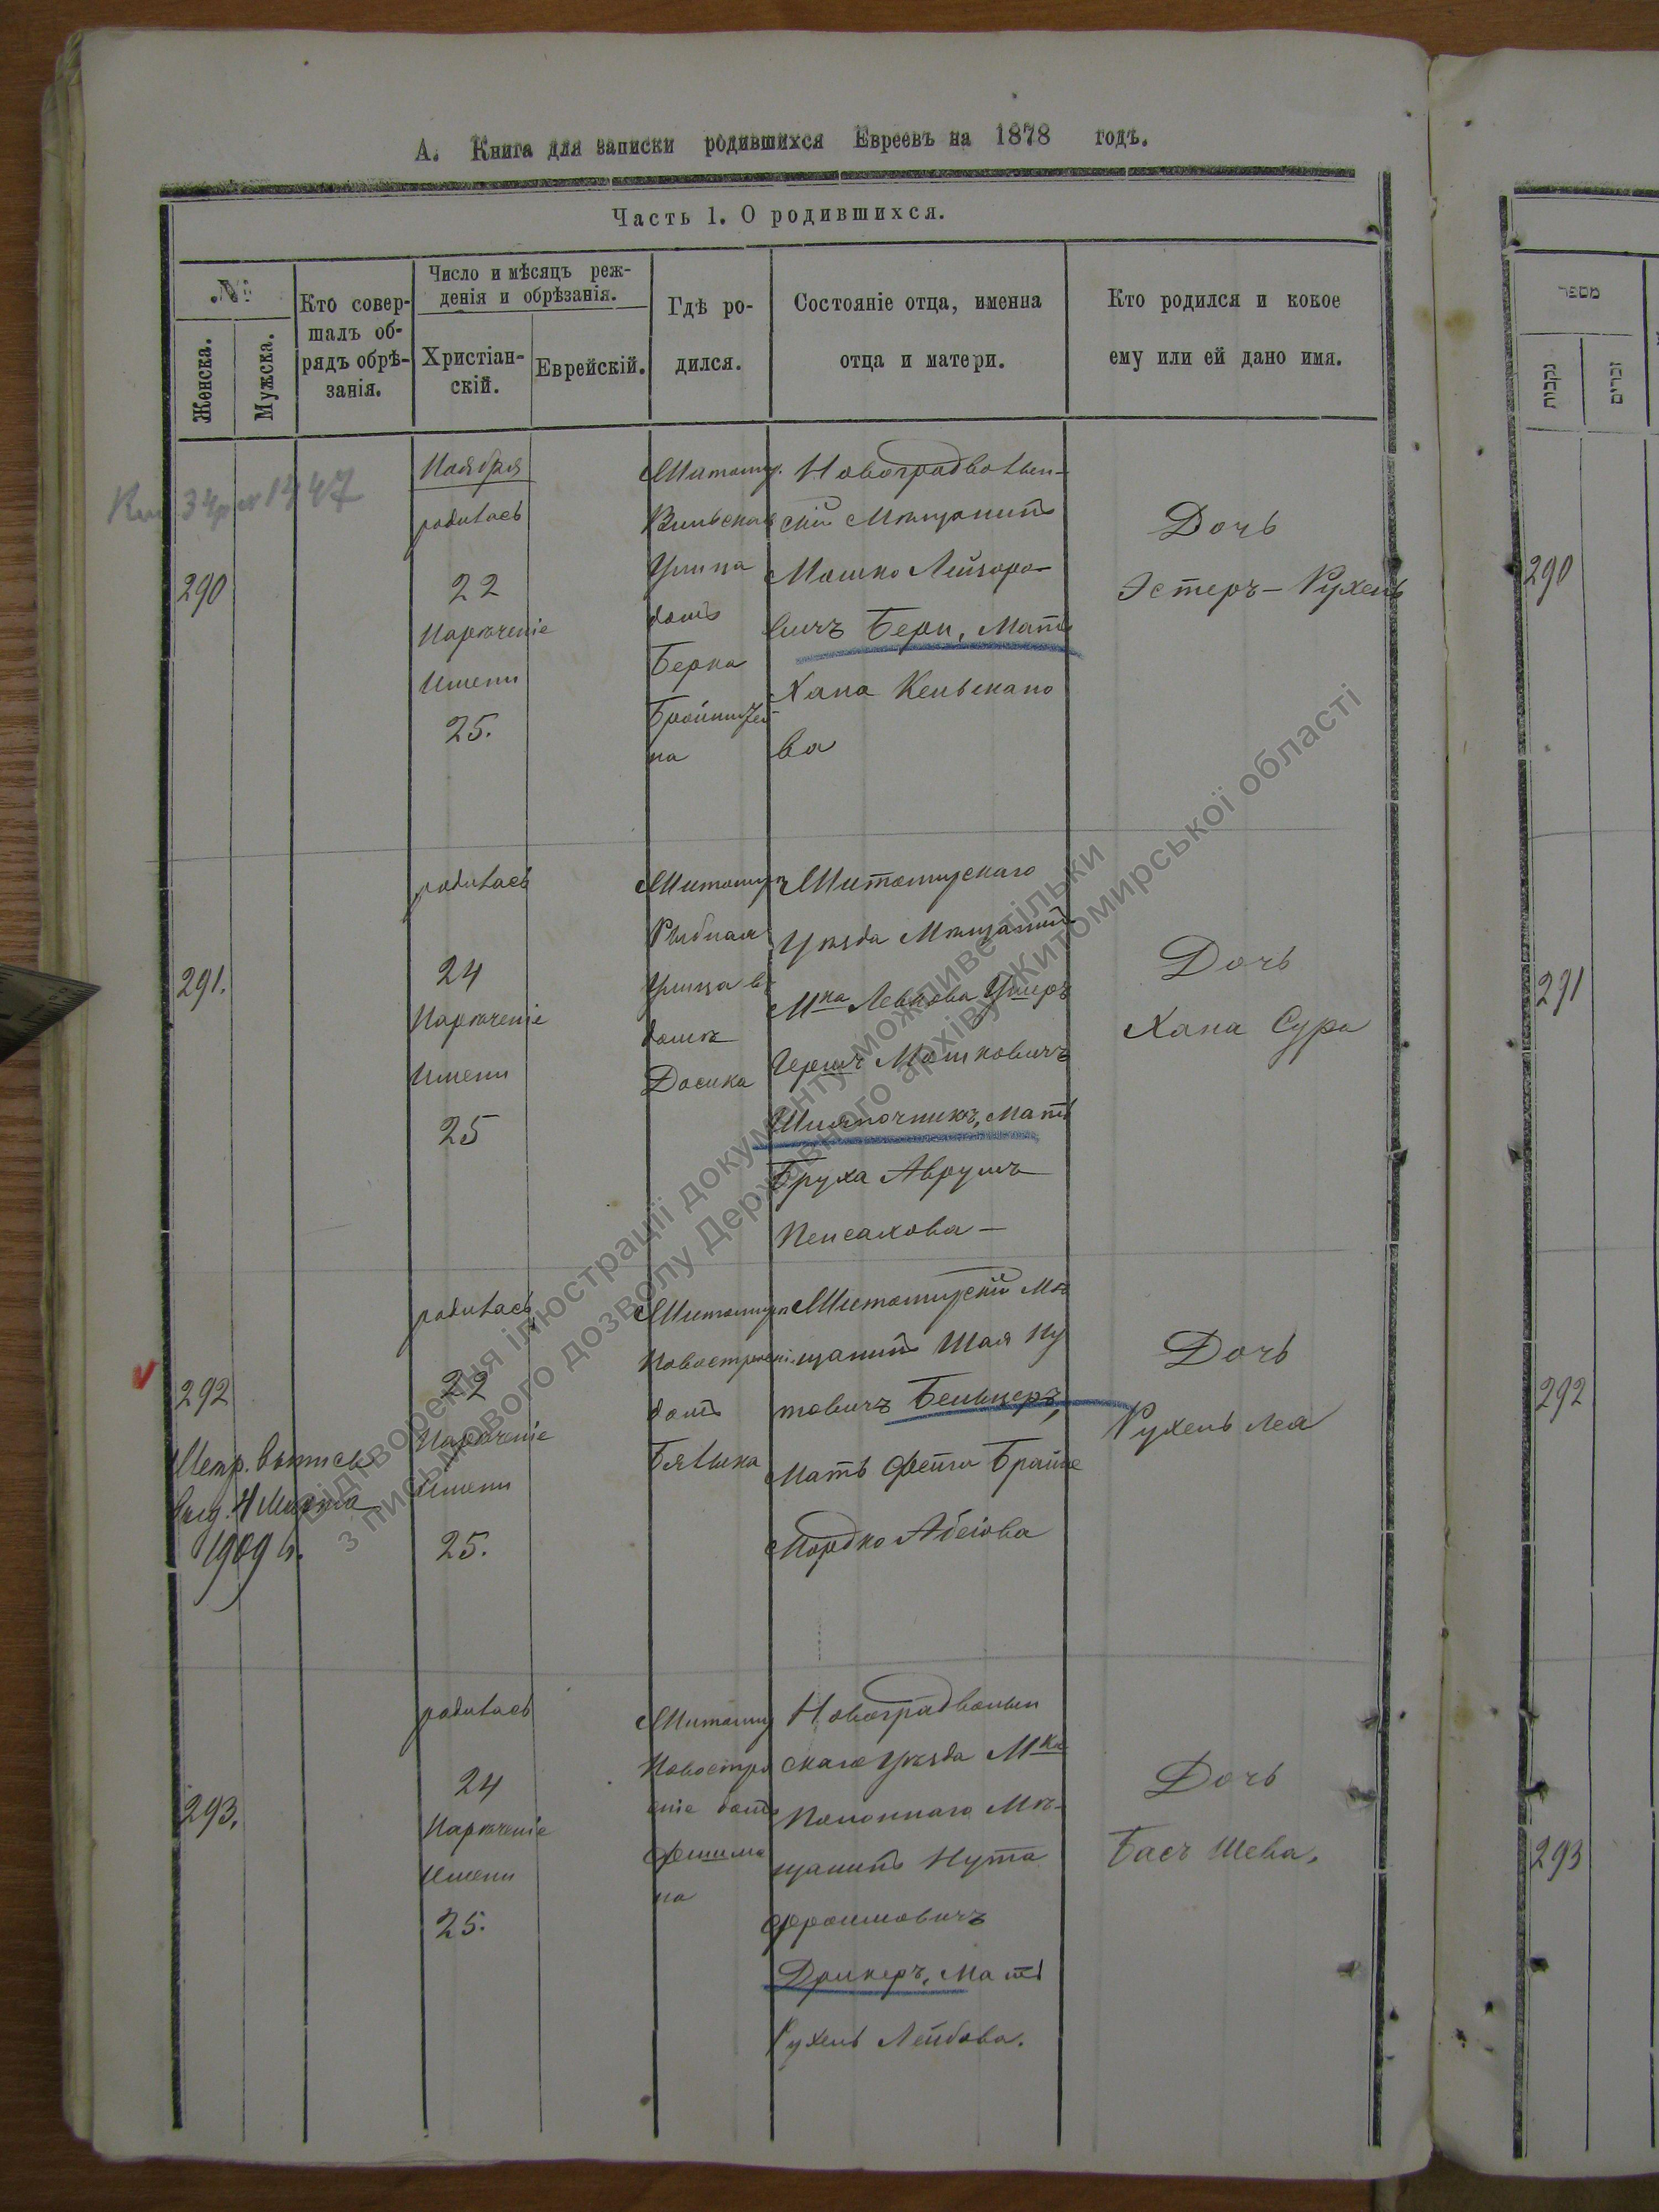 А. Книга для записки родившихся Евреевъ на 1878 годъ.
Часть 1. О родившихся.
№
Женска.
Мужска.
Кто совер-
шалъ об-
рядъ обрѣ-
занія.
Число и мѣсяцъ реж-
денія и обрѣзанія.
Христіан-
скій.
Еврейскій.
Гдѣ ро-
дился.
Состояніе отца, именна
отца и матери.
Кто родился и кокое
ему или ей дано имя.
290
Ноября
родилась
22
Нареченіе
Имени
25.
Житомир.
Вильская
Улица
домъ
Берка
на
Новоградволын-
скій Мѣщанинъ
Мошко Лейзоро-
вичъ Бери, Мать
Хана
ва
Дочь
Эстеръ-Рухель
291.
родилась
24
Нареченіе
Имени
25
Житомиръ
Рыбная
Улица въ
домѣ
Досика
Житомирскаго
Уѣзда Мѣщанинъ
Мка Левкова Ушеръ
Гершъ Мошковичъ
Шляпочникъ, Мать
Бруха Аврумъ
Пейсахова
Дочь
Хана Сура
292
Метр. выпись
выд. Марта
1909 г.
родилась
22
Нареченіе
Имени
25.
Житомиръ
домъ
Житомирскій Мѣ
щанинъ Шая Ну
товичъ Бельцеръ,
Мать Фейга Брайне
Мордко Абеіова
Дочь
Рухель Лея
293.
родилась
24
Нареченіе
Имени
25.
Житомир
Новостро
еніе домъ
Фишма
на
Новоградволын
скаго Уѣзда Мка
Полоннаго Мѣ-
щанинъ Нута
Фроимовичъ
Дрикеръ, Мать
Рухель Лейбова.
Дочь
Басъ Шева.
מספר
נקבות
זכרים
290
291
292
293
Відтворення ілюстрації документу можливе тільки
з письмового дозволу Державного архіву Житомирської області